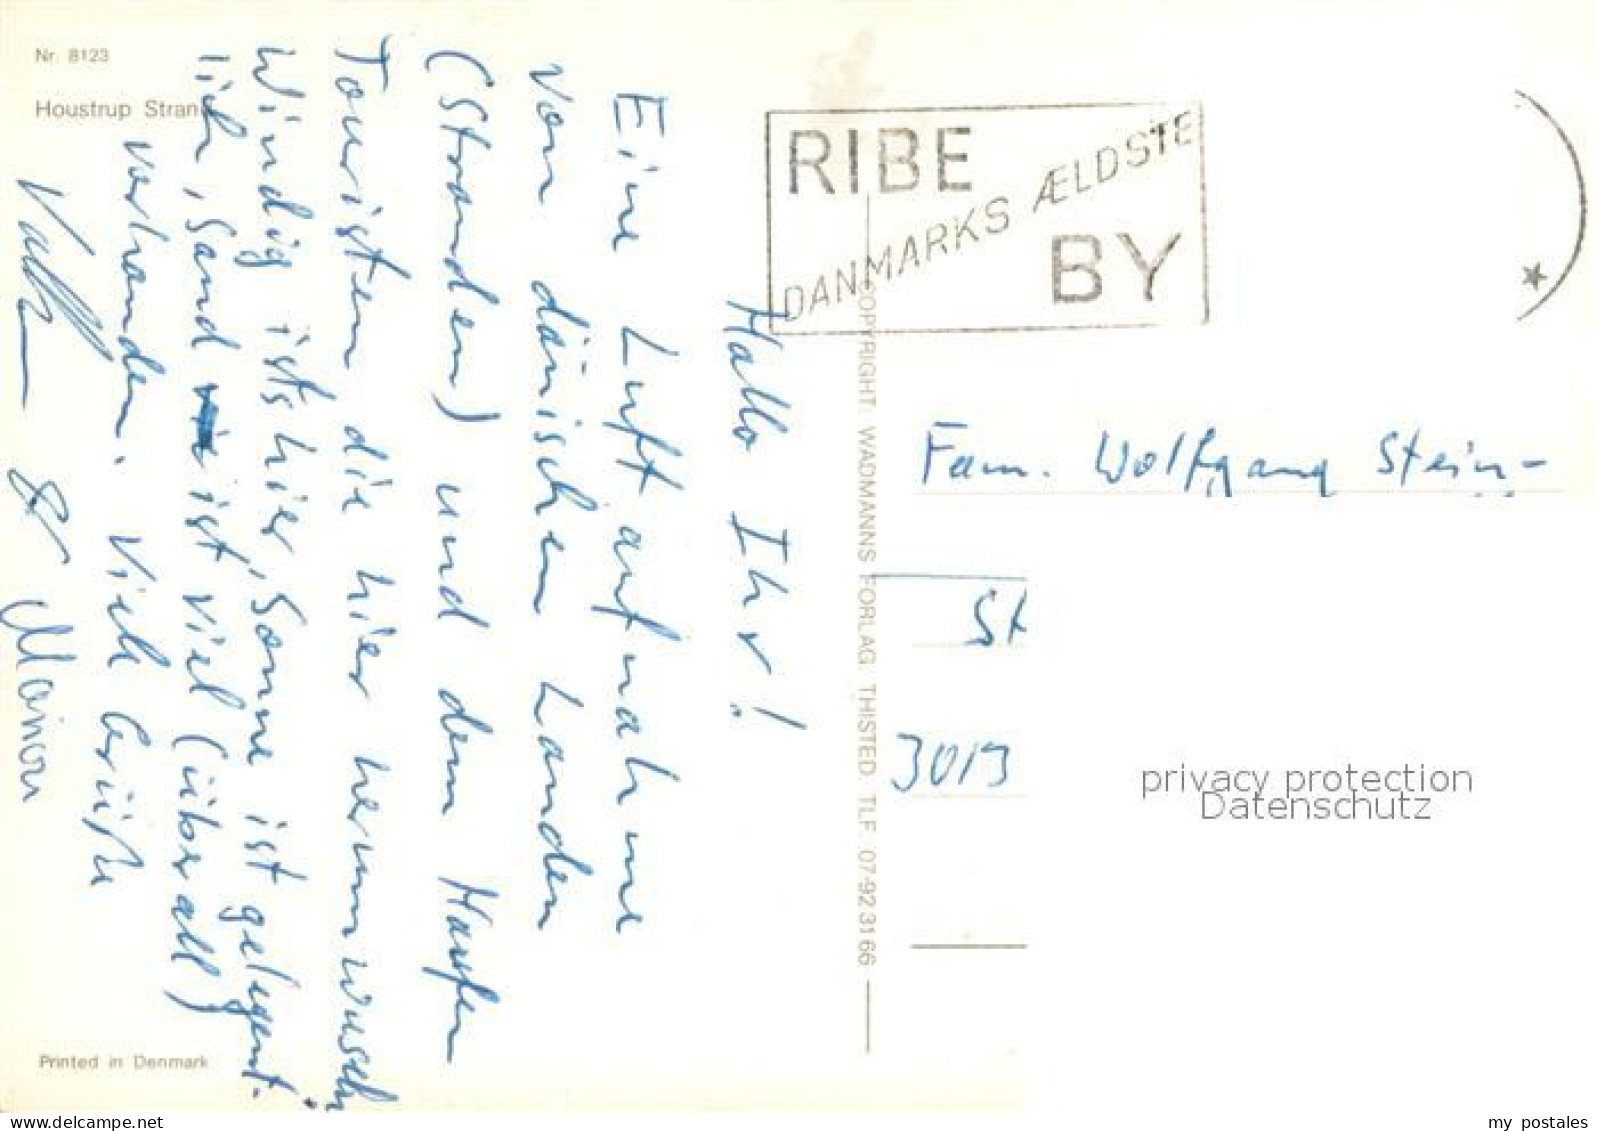 Nr. 8123
Houstrup Stran
Hallo Ihr!
Eine Luftaufnahme
von dänischen Landen
(Stranden) und dem Haufen
Touristen die hier herum
Windig ists hier, Sonne ist gelegent-
lich, Sand ist viel (überall)
vorhanden. Viele Grüße
& Marion
Printed in Denmark
COPYRIGHT: WADMANNS FORLAG. THISTED. TLF. 07-92 31 66
RIBE
DANMARKS ÆLDSTE
BY
Fam. Wolfgang Stein-
St
3013
privacy protection
Datenschutz
delcampe.net
my_postales